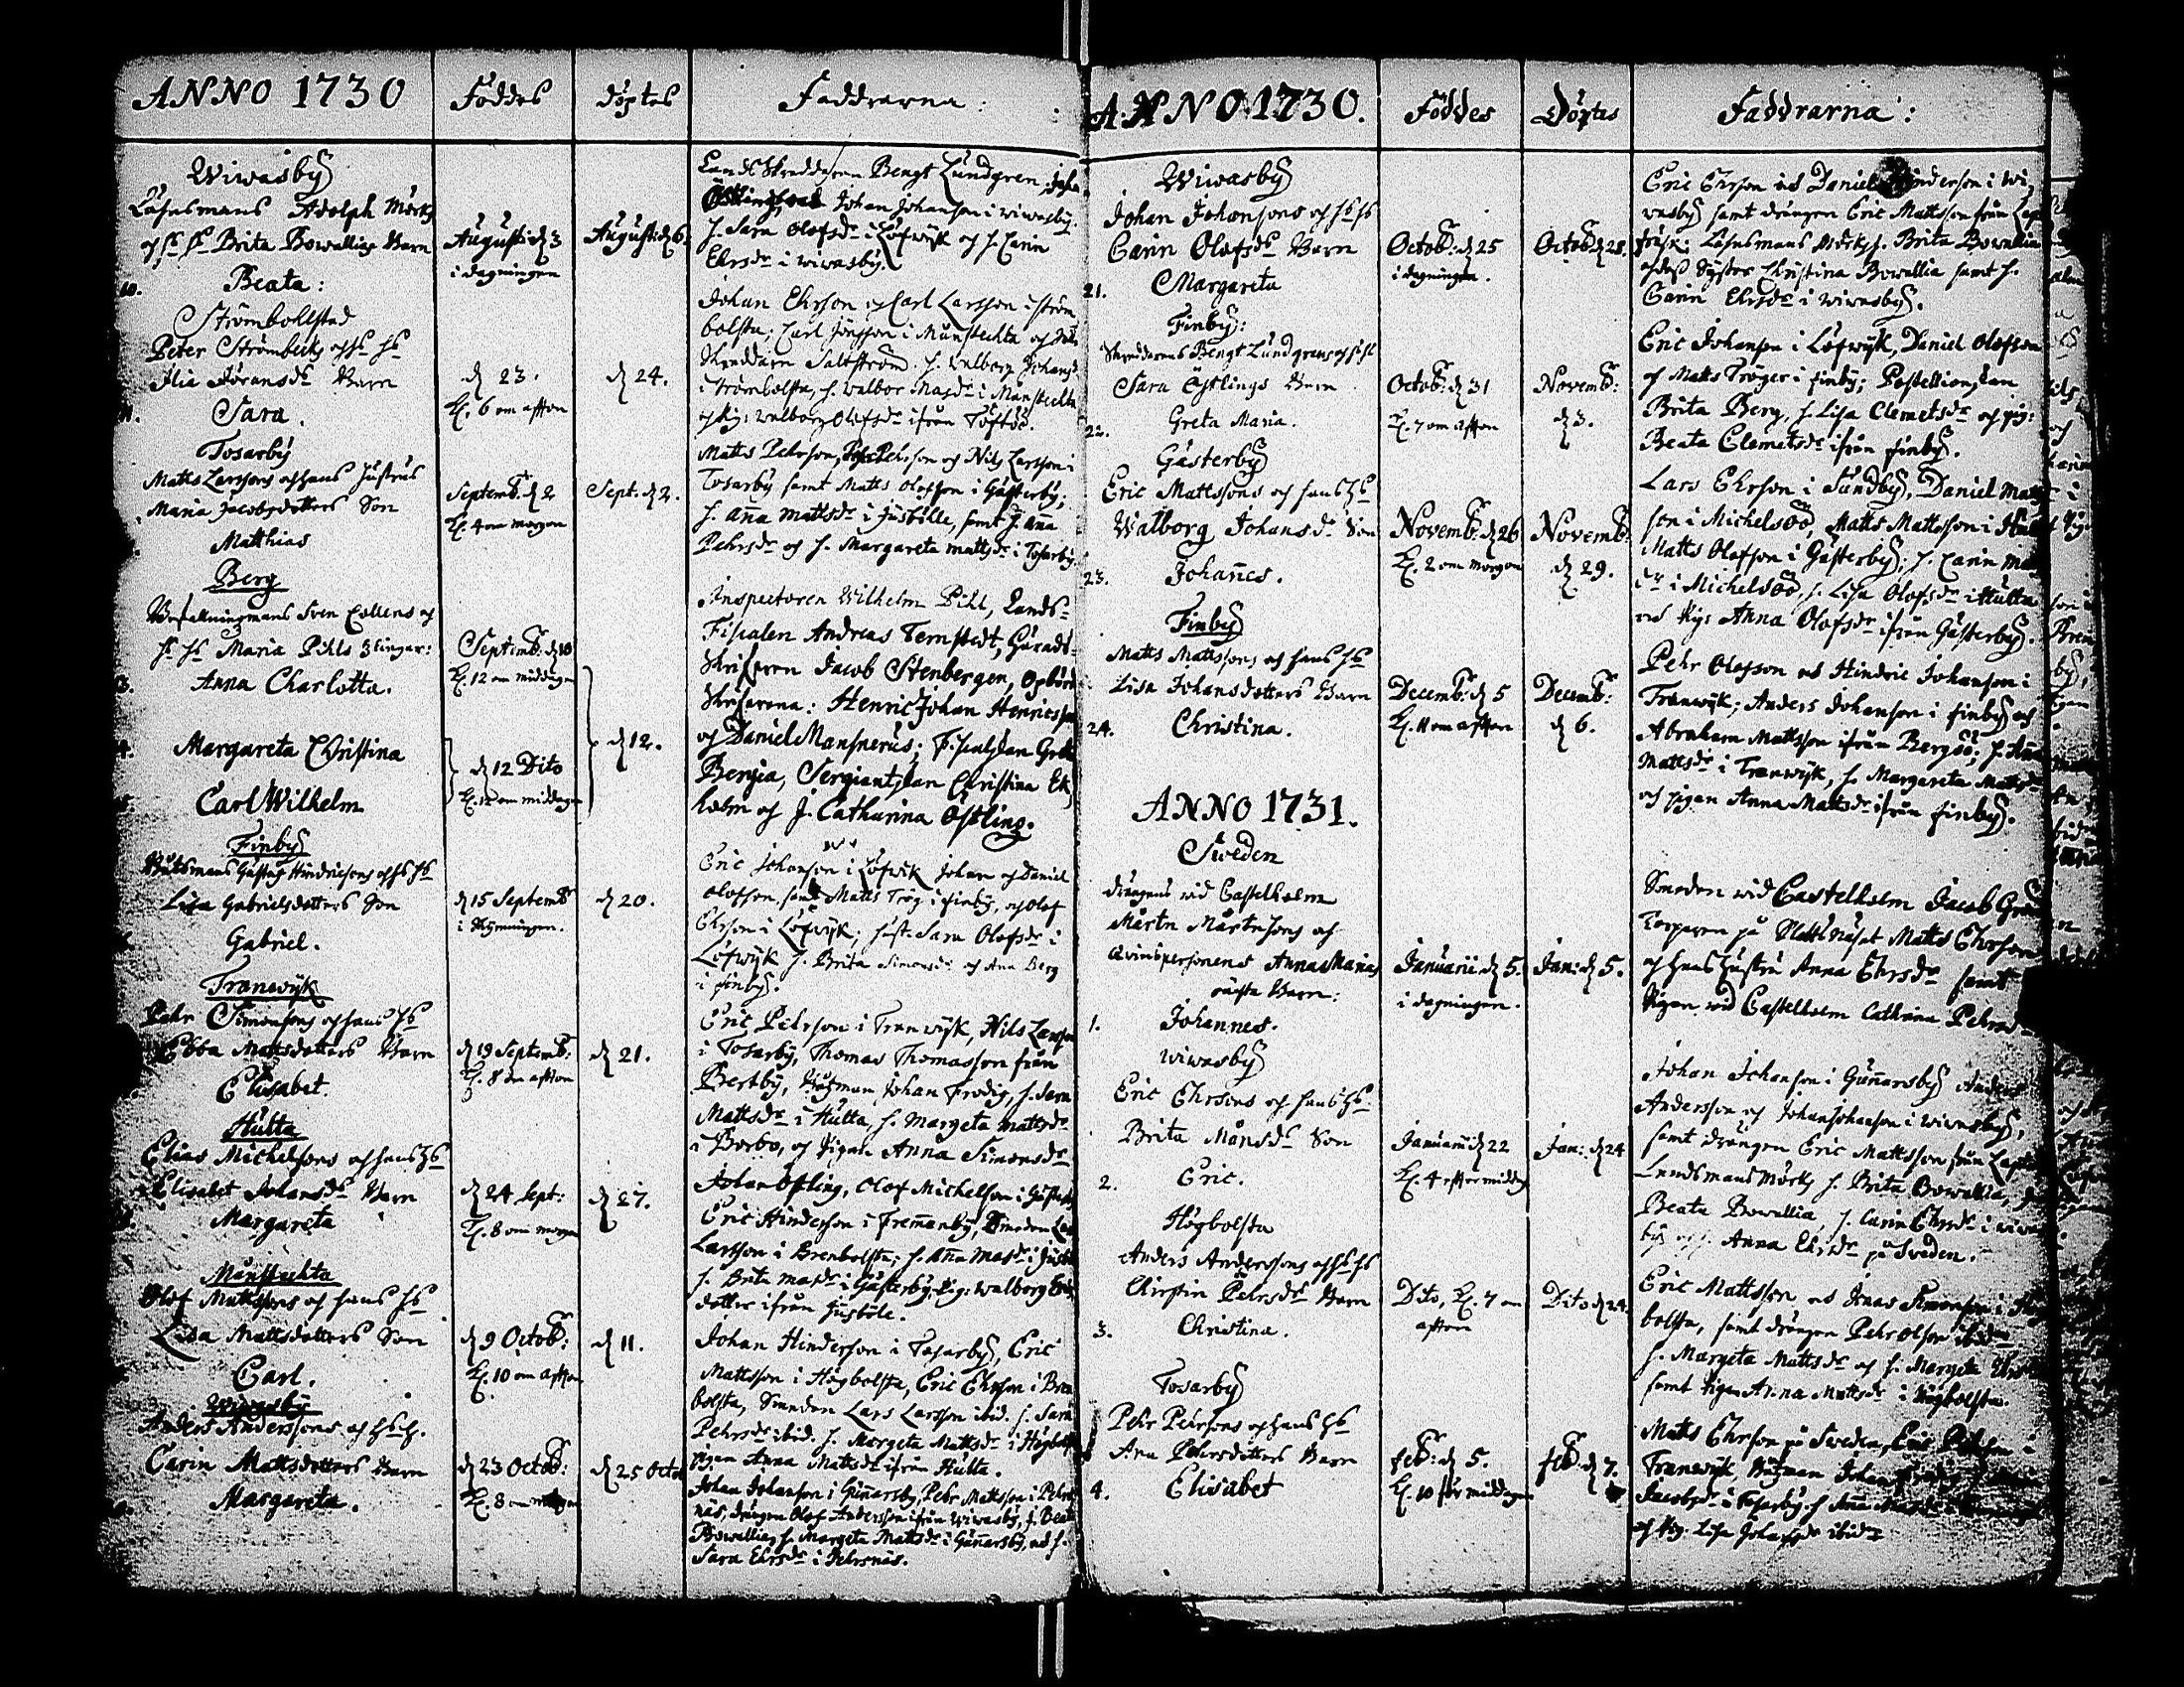 ANNO 1730
Föddes
döptes
Faddrarna:
Wiwasby
Länsmans Adolph Mörks
och hs hu Brita Bowallias Barn
Beata:
Augusti d. 3
i dagningen
Augusti d. 6.
Skreddaren Bengt Lundgren,
Johan Johanson i wiwasby.
h. Sara Olofsdr i Löfwyk och h. Carin
Ehrsdr i wiwasby.
Strömbolstad
Peter Strömbecks och hs hu
Jöransdr Barn
Sara.
d. 23.
Kl. 6 om afton
d. 24.
Johan Ehrson och Carl Larsson i Ström
bolsta; Carl Jönsson i Månstechta och
Skreddarn Saltström. h. walborg Johansd
i Strömbolsta, h. walbor Masdr i Månstechta
och Pig: walborg Olofsdr ifrån Töftöö.
Tosarby
Matts Larssons och hans hustrus
Maria Jacobsdotters Son
Matthias
Septemb: d. 2
Kl. 4 om morgon
Sept. d. 2.
Matts Pehrson, Pehrson och Nils Larsson i
Tosarby samt Matts Olofsson i Gästerby;
h. Anna Mattsdr i Jusbölle, samt h. Anna
Pehrsdr och h. Margareta Mattsdr i Tosarby.
Berg
Befallningmans Sven Collens och
h. hu Maria Pihls 3lingar:
Anna Charlotta.
Margareta Christina
Carl Wilhelm
Septemb: d. 10
Kl. 12 om middagen
d. 12 Dito
Kl. 12 om middagen
d. 12.
Inspectoren Wilhelm Pihl, Lands-
Fiscalen Andreas Ternstedt, Härads-
Skrifvaren Jacob Stenbergen, Opbörd
Skrifvarena: Henric Johan Henricsson
och Daniel Mansnerus; Fiscalskan Greta
Bergia, Sergiantskan Christina Ek
holm och J. Catharina Östling.
Finby
Båtsmans Gustaf Hindricsons och hs hu
Lisa Gabrielsdotters Son
Gabriel.
d. 15 Septemb
i skymningen.
d. 20.
Eric Johanson i Löfwik Johan och Daniel
Olofsson samt Matts Trög i finby, och Olof
Ehrson i Löfwyk; hust. Sara Olofsdr i
Löfwyk h. Brita Simonsdr och Ana Berg
i finby.
Tranewyk
Pehr Simonsons och hans hu
Ebba Mattsdotters Barn
Elisabet.
d. 19 Septemb:
Kl. 8 om afton
d. 21.
Eric Pehrson i Tranwyk, Nils Larsson
i Tosarby, Thomas Thomasson från
Bertby, Båtzman Johan Frodig, h. Sara
Mattsdr i Hulta, h. Margeta Mattsdr
i Borbo, och Pigan Anna Simonsdr
Hulta
Elias Michelsons och hans hu
Elisabet Johansdr Barn
Margareta
d. 24 Sept:
Kl. 8 om morgon
d. 27.
Johan Östling, Olof Michelson i Gästerby
Eric Hinderson i Fremanby, Smeden Lars
Larsson i Brenbolsta; h. Anna Masdr i Jusböle
h. Brita Masdr i Gästerby, Pig: walborg
dotter ifrån Jusböle.
Månstechta
Olof Mattsons och hans hu
Lisa Mattsdotters Son
Carl.
d. 9 Octob:
Kl. 10 om afton
d. 11.
Johan Hinderson i Tosarby, Eric
Mattsson i Högbolsta, Eric Ehrson i Bren
bolsta, Smeden Lars Larsson ibid. h. Sara
Pehrsdr ibid. h. Margeta Mattsdr i Högbolsta
Pigan Anna Mattsdr ifrån Hulta.
Wiwasby
Anders Anderssons och hs h.
Carin Mattsdotters Barn
Margareta.
d. 23 Octob:
Kl. 8 om morgon
d. 25 Octob
Johan Johanson i Gunnarsby, Pehr Mattson i Pehrs
näs, drängen Olof Andersson ifrån Wiwasby, J. Beata
Bowallia, h. Margeta Mattsdr i Gunnarsby, och h.
Sara Ehrsdr i Pehrsnäs.
ANNO 1730.
Föddes
Döptes
Faddrarna:
Wiwasby
Johan Johansons och hs hu
Carin Olofsdr Barn
21. Margareta
Octob: d. 25
i dagningen.
Octob d. 28.
Eric Ehrson och Daniel Hinderson i Wi
wasby samt drängen Eric Mattsson från
Länsmans Mörks h. Brita Bowallia
och dess Syster Christina Bowallia samt h.
Carin Ehrsdr i wiwasby.
Finby:
Skreddarens Bengt Lundgrens och hs hu
Sara Östlings Barn
22. Greta Maria.
Octob: d. 31
Kl. 7 om afton
Novemb:
d. 3.
Eric Johanson i Löfwyk, Daniel Olofsson
och Matts Tröger i finby; Postellionskan
Brita Berg, h. Lisa Clemetsdr och pig:
Beata Clemetsdr ifrån finby.
Gästerby
Eric Mattssons och hans hu
Walborg Johansdr Son
23. Johannes.
Novemb: d. 26
Kl. 2 om morgon
Novemb:
d. 29.
Lars Ehrson i Sundby, Daniel Matts
son i Michelsöö, Matts Mattsson i
Matts Olofson i Gästerby; h. Carin
dr i Michelsöö, h. Lisa Olofsdr i Hulta
och Pig: Anna Olofsdr ifrån Gästerby.
Finby
Matts Mattssons och hans hu
Lisa Johansdotters Barn
24. Christina.
Decemb: d. 5
Kl. 11 om afton
Decemb:
d. 6.
Pehr Olofson och Hindric Johanson i
Tranwyk; Anders Johanson i finby och
Abraham Mattsson ifrån Bergöö; h. Anna
Mattsdr i Tranwyk, h. Margareta Mattsdr
och pigan Anna Mattsdr ifrån finby.
ANNO 1731.
Sweden
drängens wid Castelholm
Mårtn Mårtnsons och
Qwinspersonens Anna Marias
oächta Barn:
1. Johannes.
Januarii d. 5.
i dagningen.
Jan: d. 5.
Smeden wid Castelholm Jacob
Torparen på Slottsnäset Matts Ehrson
och hans hustru Anna Ehrsdr samt
Pigan wid Castelholm Cathrina Pehrsd
wiwasby
Eric Ehrsons och hans hu
Brita Månsdr Son
2. Eric.
Januarii d. 22
Kl. 4 efter middag
Jan: d. 24
Johan Johanson i Gunnarsby Anders
Andersson och Johan Johanson i wiwasby,
samt drängen Eric Mattsson från
Landsmans Mörks h. Brita Bowallia,
Beata Bowallia, h. Carin Ehrsdr i wiwas
by och Anna Ehrsdr på Sweden.
Högbolsta
Anders Anderssons och hs hu
Chirstin Pehrsdr Barn
3. Christina.
Dito, Kl. 7 om
afton
Dito d. 24.
Eric Mattsson och Jonas Simonson i Hög
bolsta, samt drängen Pehr Olson ibidem
h. Margeta Mattsdr och h. Margeta Ehrsdr
samt Pigan Anna Mattsdr i Högbolsta.
Tosarby
Pehr Pehrsons och hans hu
Ana Pehrsdotters Barn
4. Elisabet
feb: d. 5.
Kl. 10 för middagen
feb: d. 7.
Matts Ehrson på Sweden, Eric Pehrson i
Tranwyk, Båtzman Johan
Jacobsdr i Tosarby h. Anna
och Pig. Lisa Johansdr ibidm